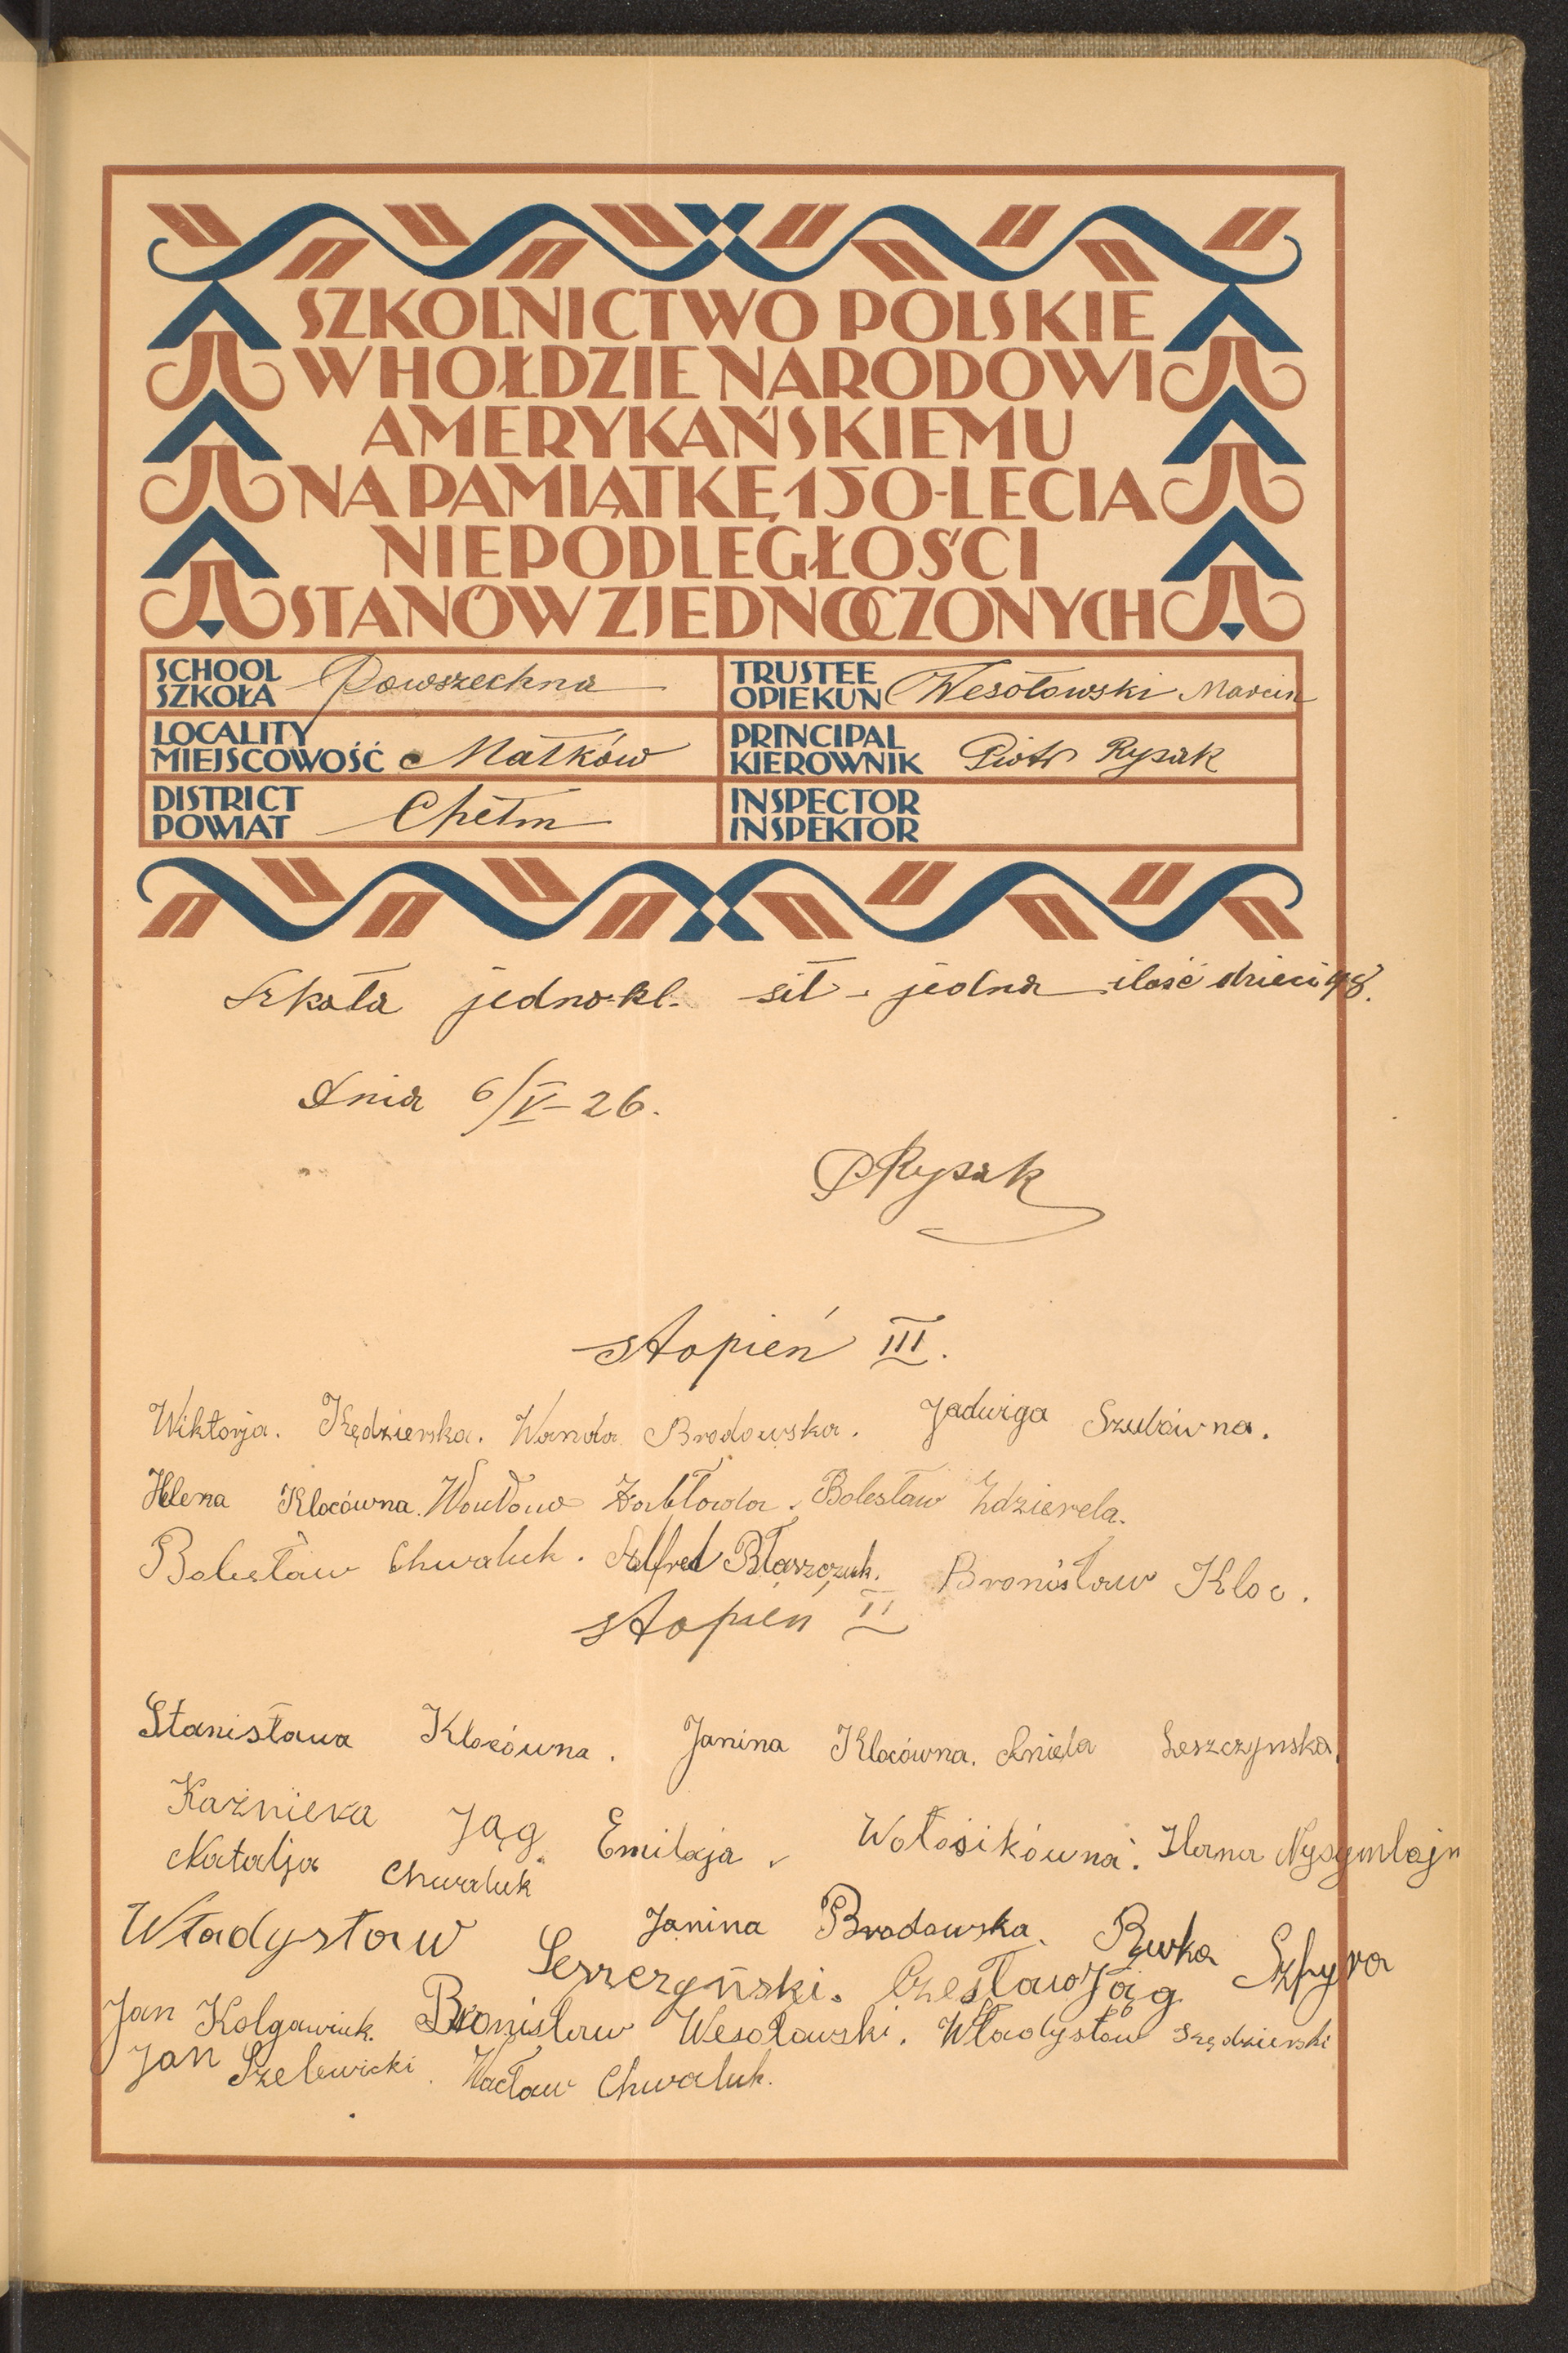 SZKOLNICTWO POLSKIE
W HOŁDZIE NARODOWI
AMERYKAŃSKIEMU
NA PAMIĄTKĘ 150-LECIA
NIEPODLEGŁOŚCI
STANÓW ZJEDNOCZONYCH
SCHOOL
SZKOŁA Powszechna
TRUSTEE
OPIEKUN Wesołowski Marcin
LOCALITY
MIEJSCOWOŚĆ Małków
PRINCIPAL
KIEROWNIK Piotr Rysak
DISTRICT
POWIAT Chełm
INSPECTOR
INSPEKTOR
Szkoła jedno-kl. sił - jedna ilość dzieci 48.
dnia 6/V-26.
PRysak
stopień III.
Wiktorja. Kędzierska. Wanda Brodowska. Jadwiga Szubówna.
Helena Klocówna. Bolesław
Bolesław Chwaluk. Alfred Błaszczuk. Bronisław Kloc.
stopień II
Stanisława Klocówna. Janina Klocówna. Aniela Leszczynska.
Kaźniera Jąg Emilaja Wołosikówna.
Natalja Chwaluk
Janina Brodowska. Rywka Szpyra
Władysław Leszczyński. Czesław Jąg
Jan Bronisław Wesołowski. Władysław
Jan Szelewicki. Wacław Chwaluk.